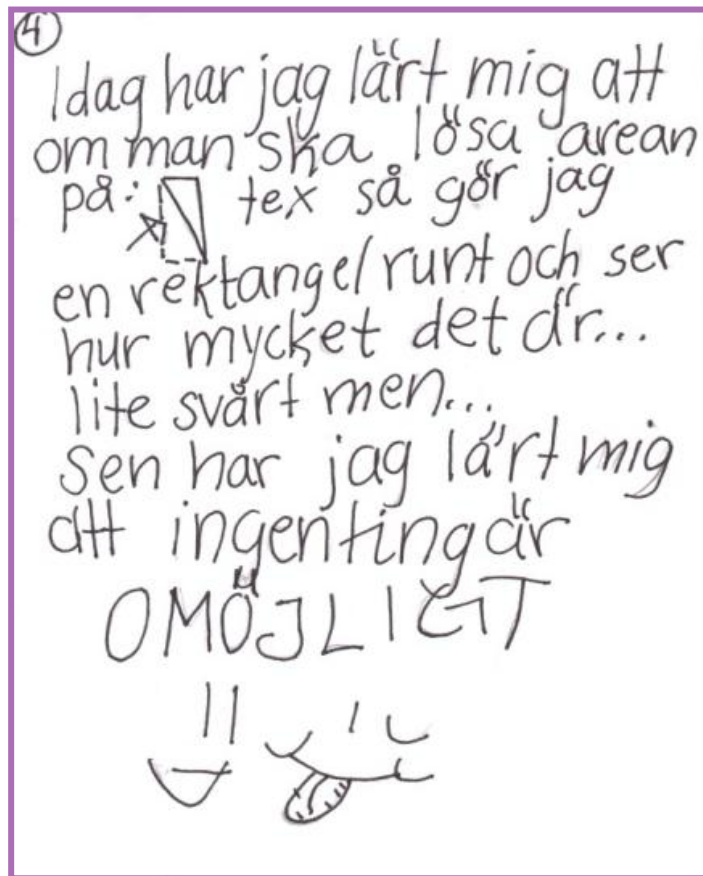 4
Idag har jag lärt mig att
om man ska lösa arean
på: tex så gör jag
en rektangel runt och ser
hur mycket det är...
lite svårt men...
Sen har jag lärt mig
att ingenting är
OMÖJLIGT